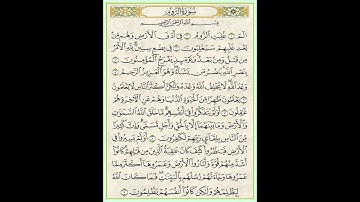 سُورَةُ الرُّومِ
بِسْمِ ٱللَّهِ ٱلرَّحْمَٰنِ ٱلرَّحِيمِ
الٓمٓ ١ غُلِبَتِ ٱلرُّومُ ٢ فِىٓ أَدْنَى ٱلْأَرْضِ وَهُم مِّنۢ
بَعْدِ غَلَبِهِمْ سَيَغْلِبُونَ ٣ فِى بِضْعِ سِنِينَ ۗ لِلَّهِ ٱلْأَمْرُ
مِن قَبْلُ وَمِنۢ بَعْدُ ۚ وَيَوْمَئِذٍ يَفْرَحُ ٱلْمُؤْمِنُونَ ٤
بِنَصْرِ ٱللَّهِ ۚ يَنصُرُ مَن يَشَآءُ ۖ وَهُوَ ٱلْعَزِيزُ ٱلرَّحِيمُ ٥
وَعْدَ ٱللَّهِ ۖ لَا يُخْلِفُ ٱللَّهُ وَعْدَهُۥ وَلَٰكِنَّ أَكْثَرَ ٱلنَّاسِ لَا يَعْلَمُونَ ٦
يَعْلَمُونَ ظَٰهِرًا مِّنَ ٱلْحَيَوٰةِ ٱلدُّنْيَا وَهُمْ عَنِ ٱلْءَاخِرَةِ هُمْ
غَٰفِلُونَ ٧ أَوَلَمْ يَتَفَكَّرُوا۟ فِىٓ أَنفُسِهِم ۗ مَّا خَلَقَ ٱللَّهُ ٱلسَّمَٰوَٰتِ
وَٱلْأَرْضَ وَمَا بَيْنَهُمَآ إِلَّا بِٱلْحَقِّ وَأَجَلٍ مُّسَمًّى ۗ وَإِنَّ كَثِيرًا
مِّنَ ٱلنَّاسِ بِلِقَآئِ رَبِّهِمْ لَكَٰفِرُونَ ٨ أَوَلَمْ يَسِيرُوا۟
فِى ٱلْأَرْضِ فَيَنظُرُوا۟ كَيْفَ كَانَ عَٰقِبَةُ ٱلَّذِينَ مِن قَبْلِهِمْ ۚ كَانُوٓا۟
أَشَدَّ مِنْهُمْ قُوَّةً وَأَثَارُوا۟ ٱلْأَرْضَ وَعَمَرُوهَآ أَكْثَرَ مِمَّا
عَمَرُوهَا وَجَآءَتْهُمْ رُسُلُهُم بِٱلْبَيِّنَٰتِ ۖ فَمَا كَانَ ٱللَّهُ
لِيَظْلِمَهُمْ وَلَٰكِن كَانُوٓا۟ أَنفُسَهُمْ يَظْلِمُونَ ٩